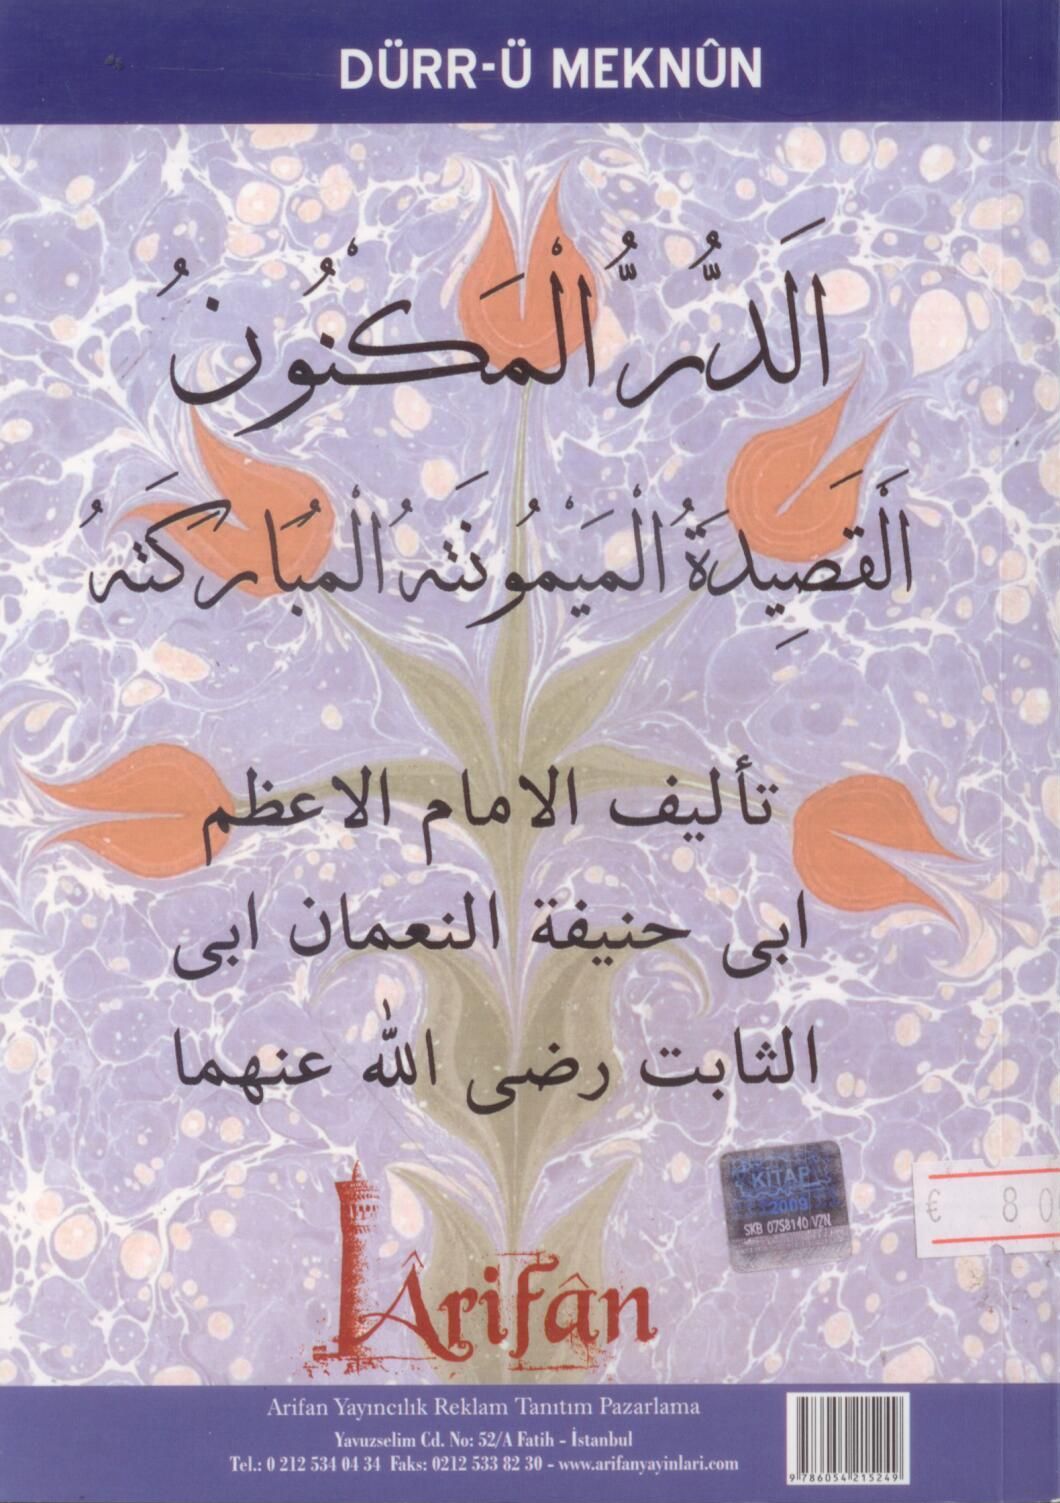 DÜRR-Ü MEKNÛN
اَلدُّرُّ الْمَكْنُونُ
اَلْقَصِيدَةُ الْمَيْمُونَتهُ الْمُبَارَكَتهُ
تأليف الامام الاعظم
ابى حنيفة النعمان ابى
الثابت رضى الله عنهما
KİTAP
2009
SKB 0758140 VZN
€ 80
Ârifân
Arifan Yayıncılık Reklam Tanıtım Pazarlama
Yavuzselim Cd. No: 52/A Fatih - İstanbul
Tel.: 0 212 534 04 34 Faks: 0212 533 82 30 - www.arifanyayinlari.com
9 786054 215249